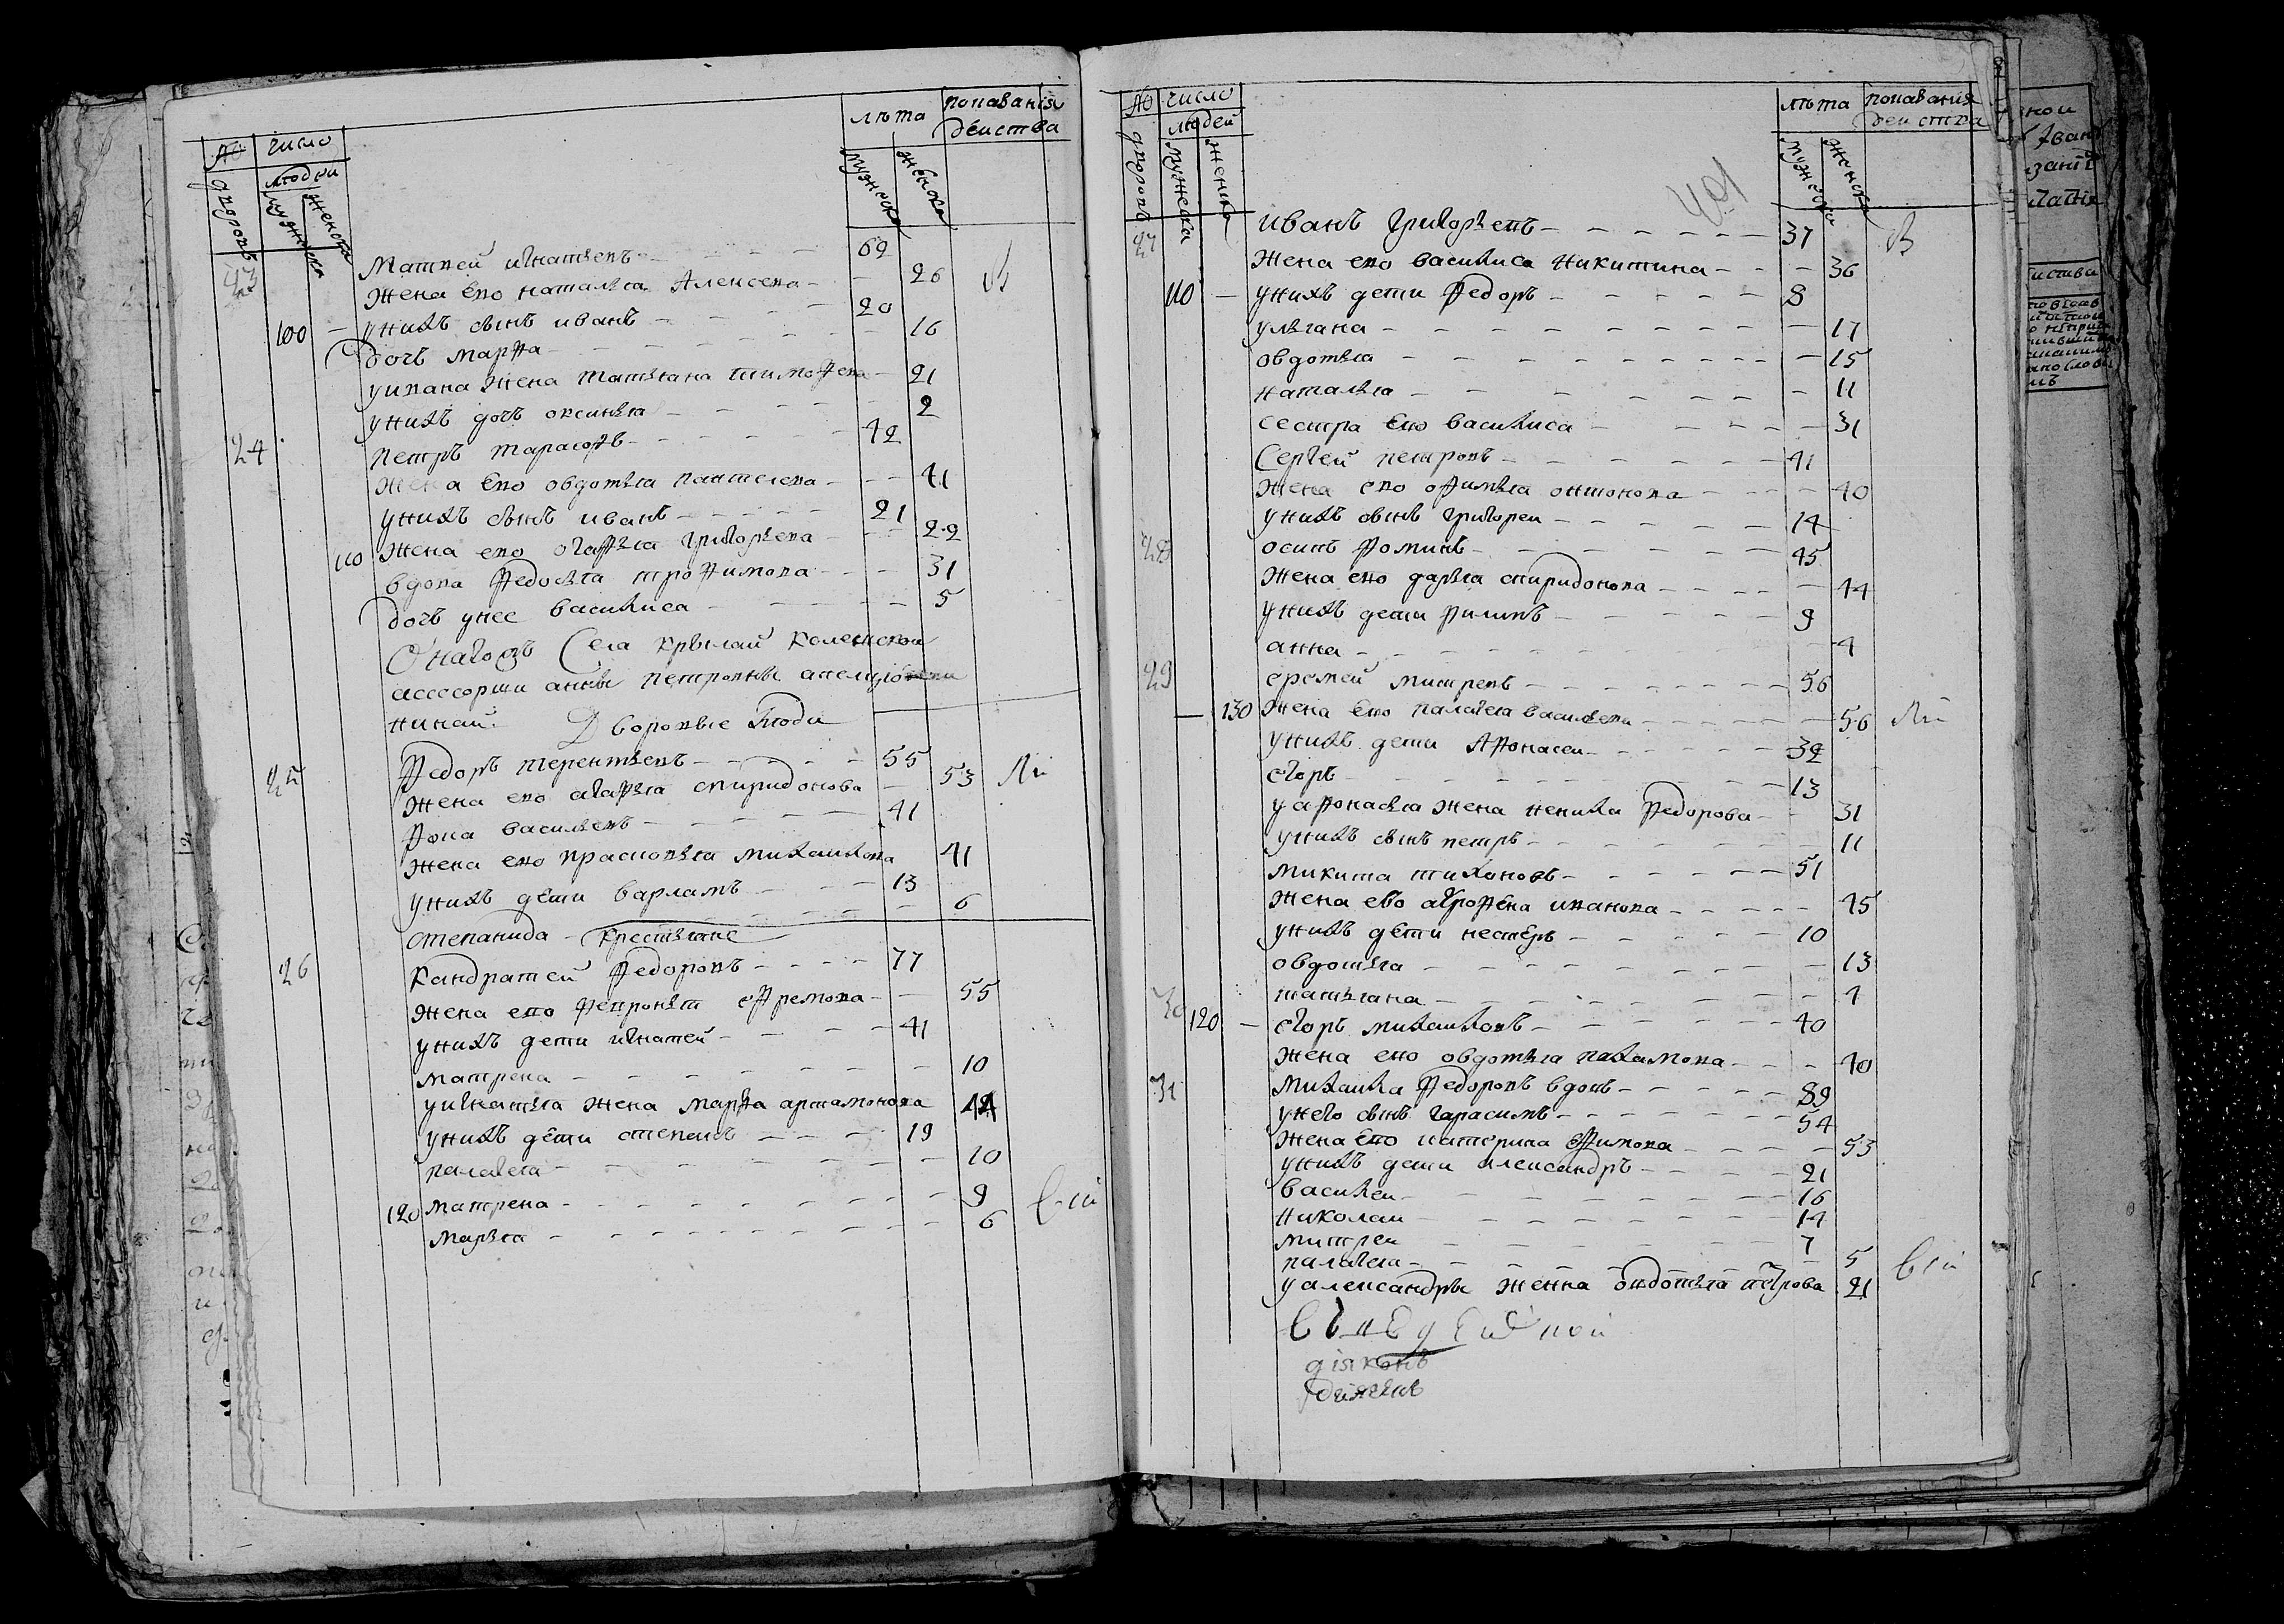 № дворовъ
число людеи
мужеска
женска
лѣта
мужеска
женска
показания действа
23 Матвей игнатьевъ 62
Жена ево наталья Алексеева 26
100 — у нихъ сынъ иванъ 20
дочь марфа 16
у ивана жена татьяна тимофева 21
у нихъ дочь оксинья 2
24 петръ тарасовъ 42
жена ево овдотья пантелева 41
у нихъ сынъ иванъ 21
110 жена ево огафья григорьева 22
вдова федосья трофимова 31
дочь у нее василиса 5
Онагожъ Села крылай колежской
асессорши анны петровны
Дворовые люди
25 Федоръ терентьевъ 55
жена ево агафья спиридонова 53
фока васильевъ 41
жена ево прасковья михаилова 41
у нихъ дети варламъ 13
степанида 6
крестьяне
26 кандратей федоровъ 77
жена ево февронья ефремова 55
у нихъ дети игнатей 41
матрена 10
у игнатья жена марфа артамонова 44
у нихъ дети степанъ 19
палагея 10
120 матрена 9
марья 6
№ дворовъ
число людей
мужеска
женска
лѣта
мужеска
женска
показания действа
401
27 иванъ григорьевъ 37
жена ево василиса никитина 36
110 — у нихъ дети федоръ 8
ульяна 17
овдотья 15
наталья 11
сестра ево василиса 31
Сергей петровъ 41
жена ево офимья онтонова 40
у нихъ сынъ григореи 14
28 осипъ фоминъ 45
жена ево дарья спиридонова 44
у нихъ дети филипъ 9
анна 4
29 еремей митревъ 56
— 130 жена ево палагея васильева 56
у нихъ дети Афонасеи 32
егоръ 13
у афонасья жена ненила федорова 31
у нихъ сынъ петръ 11
микита тихоновъ 51
жена ево агрофена иванова 45
у нихъ дети нестеръ 10
овдотья 13
татьяна 4
30 120 — егоръ михаиловъ 40
жена ево овдотья пахамова 40
31 михаила федоровъ вдовъ 89
у него сынъ гарасимъ 54
жена ево катерина ефимова 53
у нихъ дети александръ 21
василеи 16
николаи 14
митреи 7
палагея 5
у александры женка овдотья петрова 21
дiяконъ